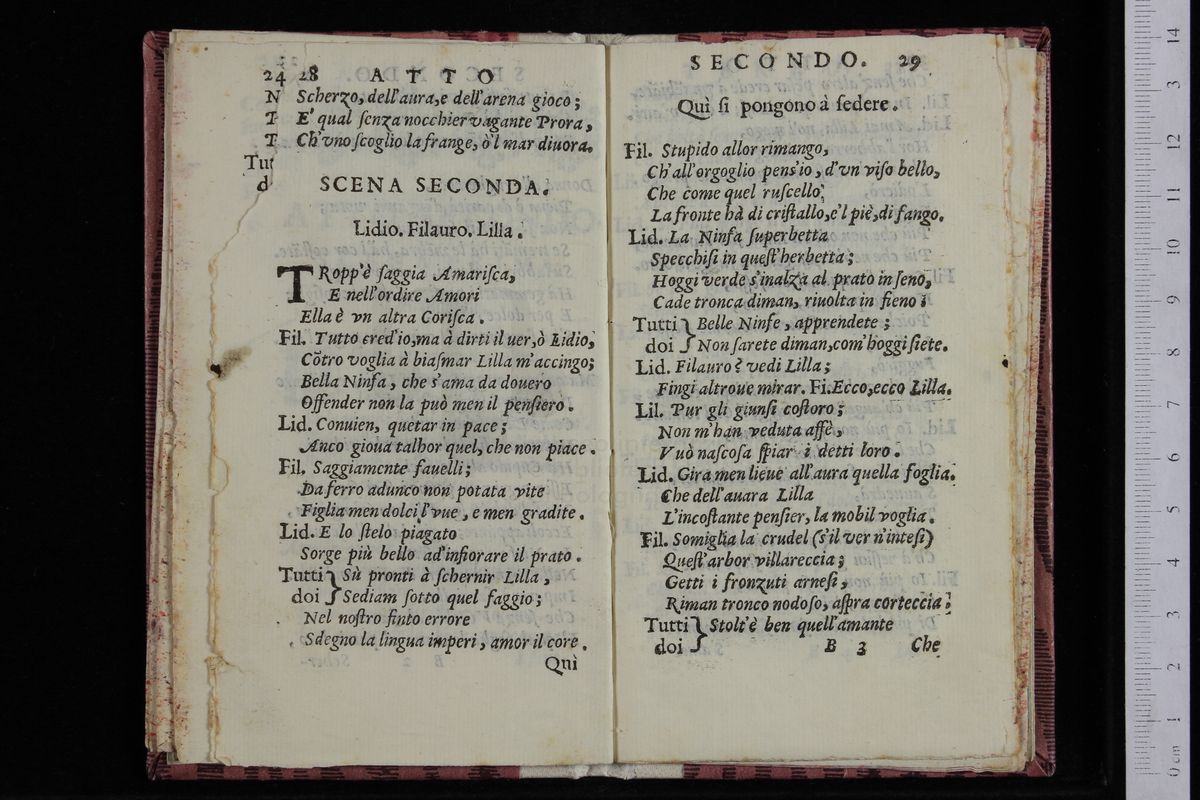 24 28 ATTO
N Scherzo, dell'aura, e dell'arena gioco;
T E' qual senza nocchier vagante Prora,
T Ch'vno scoglio la frange, ò'l mar diuora.
Tut
d
SCENA SECONDA.
Lidio. Filauro. Lilla.
TRopp'è saggia Amarisca,
E nell'ordire Amori
Ella è vn altra Corisca.
Fil. Tutto cred'io, ma à dirti il uer, ò Lidio,
Cõtro voglia à biasmar Lilla m'accingo;
Bella Ninfa, che s'ama da douero
Offender non la può men il pensiero.
Lid. Conuien, quetar in pace;
Anco gioua talhor quel, che non piace.
Fil. Saggiamente fauelli;
Da ferro adunco non potata vite
Figlia men dolci l'vue, e men gradite.
Lid. E lo stelo piagato
Sorge più bello ad'infiorare il prato.
Tutti } Sù pronti à schernir Lilla,
doi } Sediam sotto quel faggio;
Nel nostro finto errore
Sdegno la lingua imperi, amor il core.
Qui
SECONDO. 29
Quì si pongono à sedere.
Fil. Stupido allor rimango,
Ch'all'orgoglio pens'io, d'vn viso bello,
Che come quel ruscello,
La fronte hà di cristallo, e'l piè, di fango.
Lid. La Ninfa superbetta
Specchisi in quest'herbetta;
Hoggi verde s'inalza al prato in seno,
Cade tronca diman, riuolta in fieno;
Tutti } Belle Ninfe, apprendete;
doi } Non sarete diman, com'hoggi siete.
Lid. Filauro? vedi Lilla;
Fingi altroue mirar. Fi. Ecco, ecco Lilla.
Lil. Pur gli giunsi costoro;
Non m'han veduta affè,
Vuò nascosa spiar i detti loro.
Lid. Gira men lieue all'aura quella foglia.
Che dell'auara Lilla
L'incostante pensier, la mobil voglia.
Fil. Somiglia la crudel (s'il ver n'intesi)
Quest'arbor villareccia;
Getti i fronzuti arnesi,
Riman tronco nodoso, aspra corteccia;
Tutti } Stolt'è ben quell'amante
doi }
B 3 Che